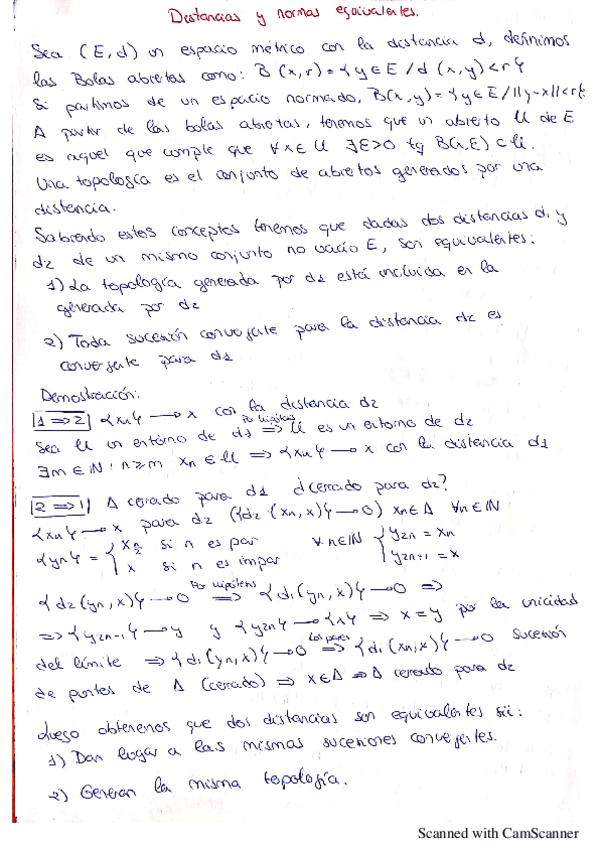 Distancias y normas equivalentes.
Sea (E,d) un espacio métrico con la distancia d, definimos
las Bolas abiertas como: B(x,r)={y∈E / d(x,y)<r}
Si partimos de un espacio normado, B(x,y)={y∈E/||y-x||<r}.
A partir de las bolas abiertas, tenemos que un abierto U de E
es aquel que cumple que ∀x∈U ∃ε>0 tq B(x,ε)⊂U.
Una topología es el conjunto de abiertos generados por una
distancia.
Sabiendo estos conceptos tenemos que dadas dos distancias d1 y
d2 de un mismo conjunto no vacío E, son equivalentes:
1) La topología generada por d1 está incluida en la
generada por d2
2) Toda sucesión convergente para la distancia d2 es
convergente para d1
Demostración:
1 ⇒ 2 {xn} → x con la distancia d2
Sea U un entorno de d1 ⇒ Por hipótesis U es un entorno de d2
∃m∈ℕ : n≥m xn∈U ⇒ {xn} → x con la distancia d1
2 ⇒ 1 A cerrado para d1 ¿cerrado para d2?
{xn} → x para d2 ({d2(xn,x)} → 0) xn∈A ∀n∈ℕ
{yn} = { xn/2 si n es par ∀n∈ℕ { y2n = xn
x si n es impar y2n+1 = x
{d2(yn,x)} → 0 Por hipótesis ⇒ {d1(yn,x)} → 0 ⇒
⇒ {y2n-1} → y y {y2n} → {x} ⇒ x=y por la unicidad
del límite ⇒ {d1(yn,x)} → 0 Los pares ⇒ {d1(xn,x)} → 0 Sucesión
de puntos de A (cerrado) ⇒ x∈A ⇒ A cerrado para d2
Luego obtenemos que dos distancias son equivalentes sii:
1) Dan lugar a las mismas sucesiones convergentes.
2) Generan la misma topología.
Scanned with CamScanner